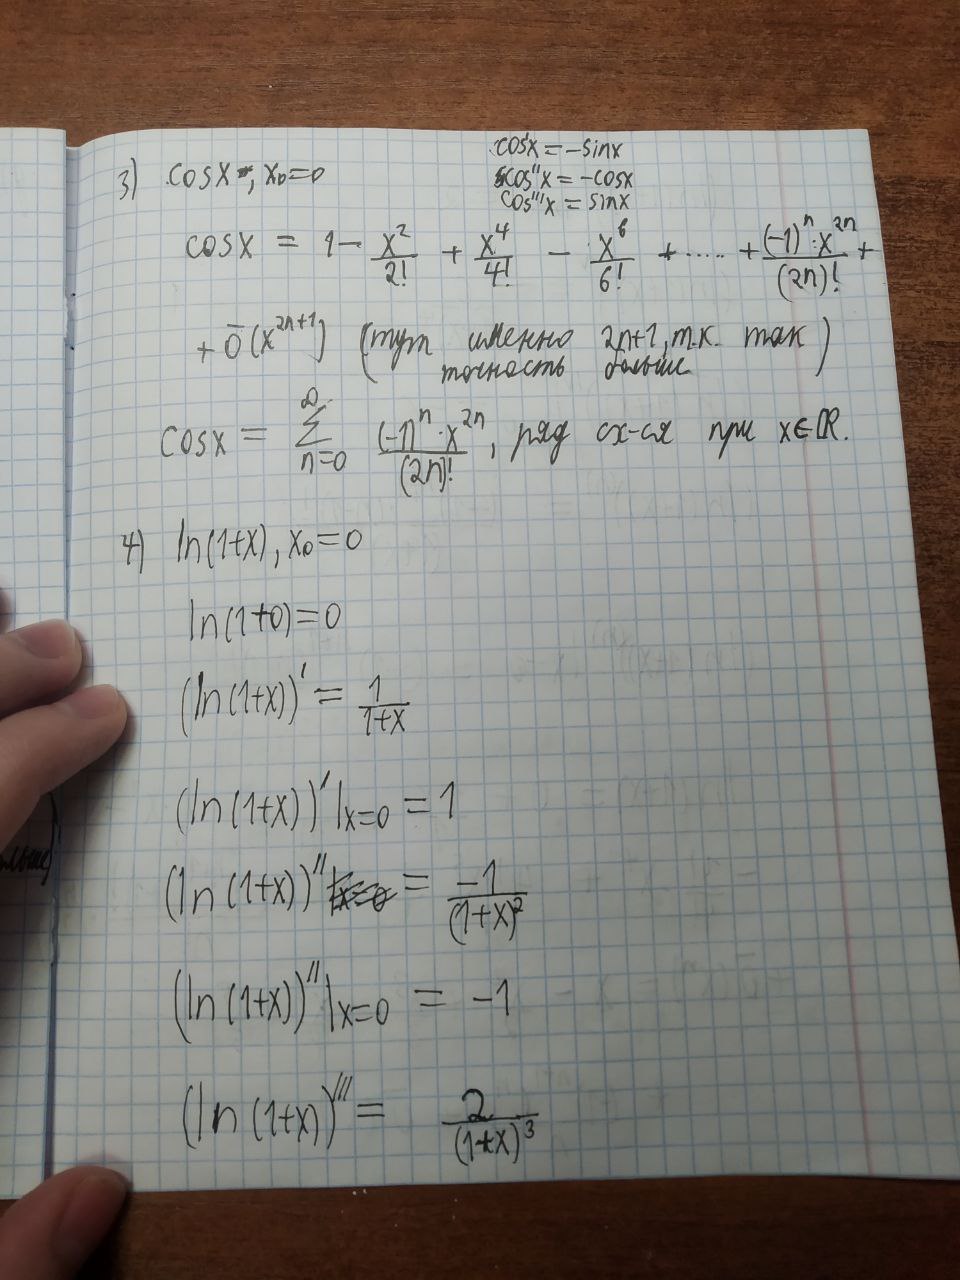 cos'x = -sinx
cos''x = -cosx
cos'''x = sinx
3) cosx, x₀=0
cosx = 1 - x²/2! + x⁴/4! - x⁶/6! + ..... + (-1)ⁿ·x²ⁿ/(2n)! +
+ ō(x²ⁿ⁺¹) (тут именно 2n+1, т.к. так
точность больше)
cosx = ∑_{n=0}^{∞} (-1)ⁿ·x²ⁿ/(2n)!, ряд сх-ся при x∈ℝ.
4) ln(1+x), x₀=0
ln(1+0)=0
(ln(1+x))' = 1/(1+x)
(ln(1+x))'|x=0 = 1
(ln(1+x))'' = -1/(1+x)²
(ln(1+x))''|x=0 = -1
(ln(1+x))''' = 2/(1+x)³